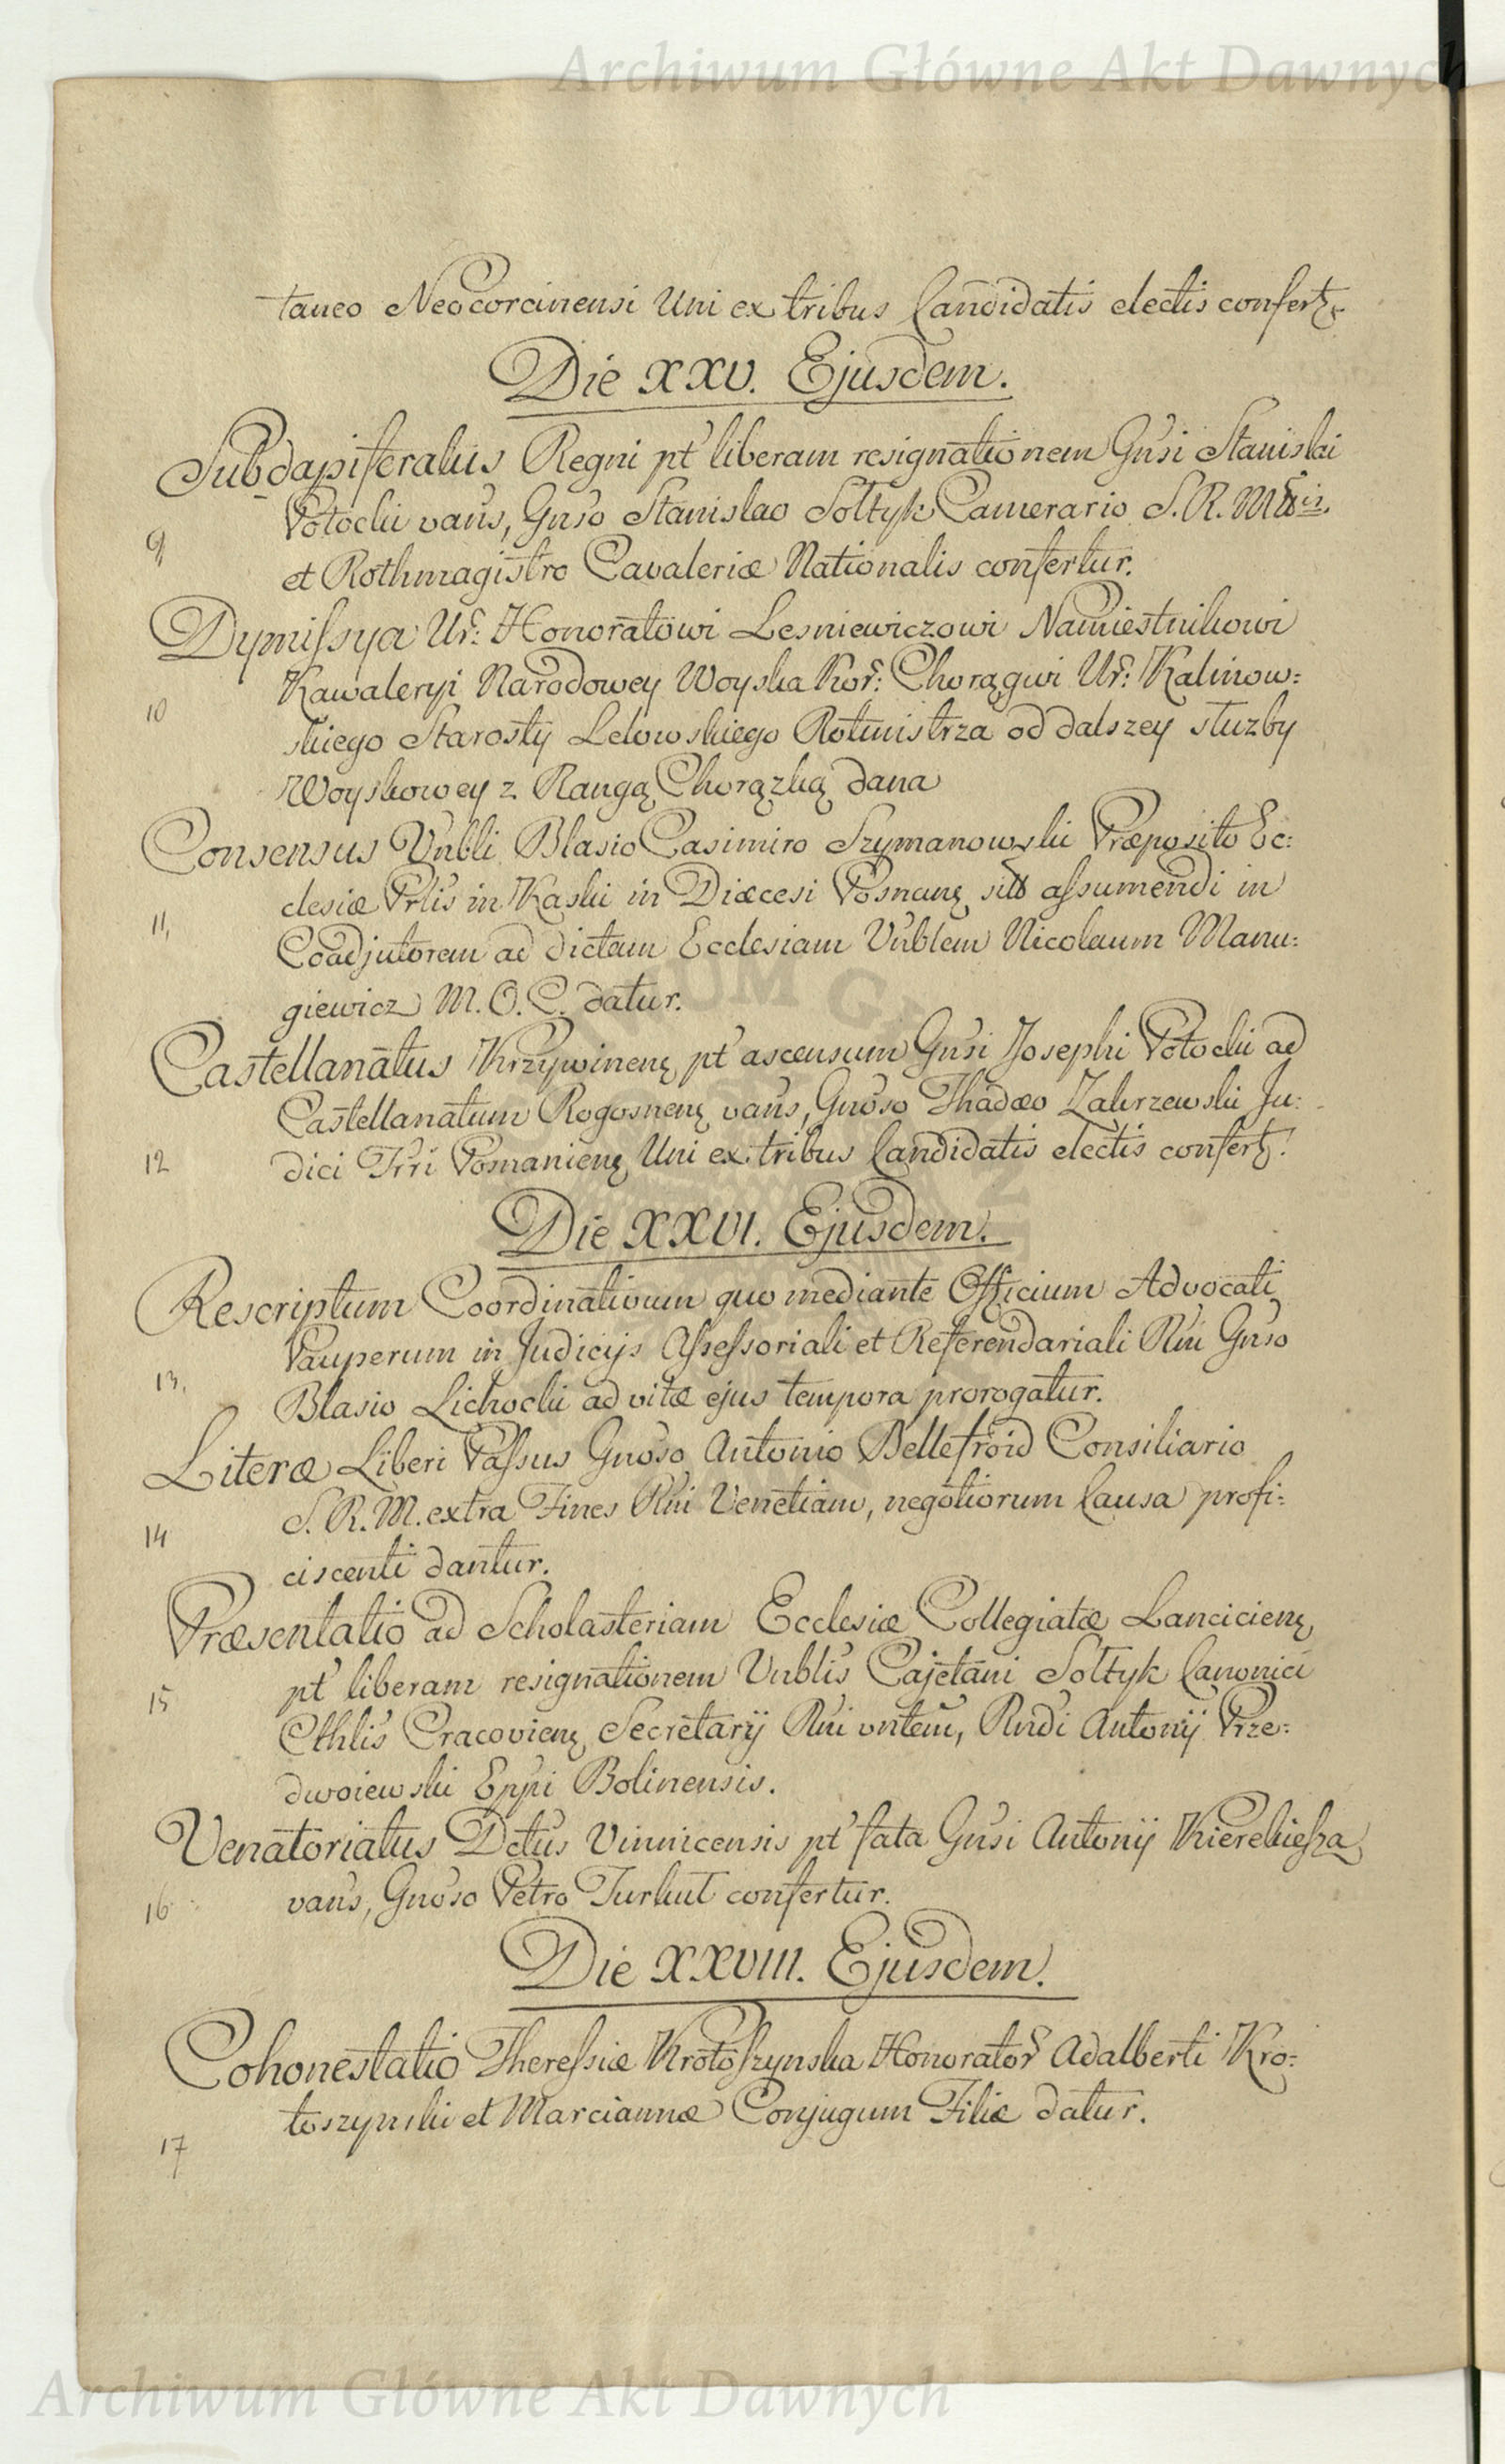 Archiwum Główne Akt Dawnych
taneo Neocorcinensi Uni ex tribus Candidatis electis confertꝫ
Die XXV. Ejusdem.
Subdapiferatus Regni pt liberam resignationem Gnsi Stanislai
Potocki vans, Gnso Stanislao Sołtyk Camerario S. R. Mttis
9
et Rothmagistro Cavaleriæ Nationalis confertur.
Dymissya Ur: Honoratowi Lesniewiczowi Namiestnikowi
Kawaleryi Narodowey Woyska Kor: Chorągwi Ur: Kalinow:
10
skiego Starosty Lelowskiego Rotmistrza od dalszey służby
Woyskowey z Rangą Chorązką dana
Consensus Vnbli Blasio Casimiro Szymanowski Præposito Ec:
clesiæ Prlis in Kaski in Diæcesi Posnanę sibi assumendi in
11,
Coadjutorem ad dictam Ecclesiam Vnblem Nicolaum Manu:
giewicz M. O. C. datur.
Castellanatus Krzywinenę pt ascensum Gnsi Josephi Potocki ad
Castellanatum Rogosnenę vans, Gnoso Thadæo Zakrzewski Ju:
12
dici Trri Posnanienę Uni ex tribus Candidatis electis confertꝫ.
Die XXVI. Ejusdem.
Rescriptum Coordinativum quo mediante Officium Advocati
Pauperum in Judicijs Assessoriali et Referendariali Rni Gnso
13,
Blasio Lichocki ad vitæ ejus tempora prorogatur.
Literæ Liberi Passus Gnoso Antonio Bellefroid Consiliario
S. R. M. extra Fines Rni Venetiam, negotiorum Causa profi:
14
ciscenti dantur.
Præsentatio ad Scholasteriam Ecclesiæ Collegiatæ Lancicienę
pt liberam resignationem Vnblis Cajetani Sołtyk Canonici
15
Cthlis Cracovienę Secretarij Rni vntem, Rndi Antonij Prze:
dwoiewski Eppi Bolinensis.
Venatoriatus Dctus Vinnicensis pt fata Gnsi Antonij Kierekiesza
vans, Gnoso Petro Turkuł confertur.
16
Die XXVIII. Ejusdem.
Cohonestatio Theressiæ Krotoszynska Honorator Adalberti Kro:
toszynski et Marciannæ Conjugum Filiæ datur.
17
Archiwum Główne Akt Dawnych